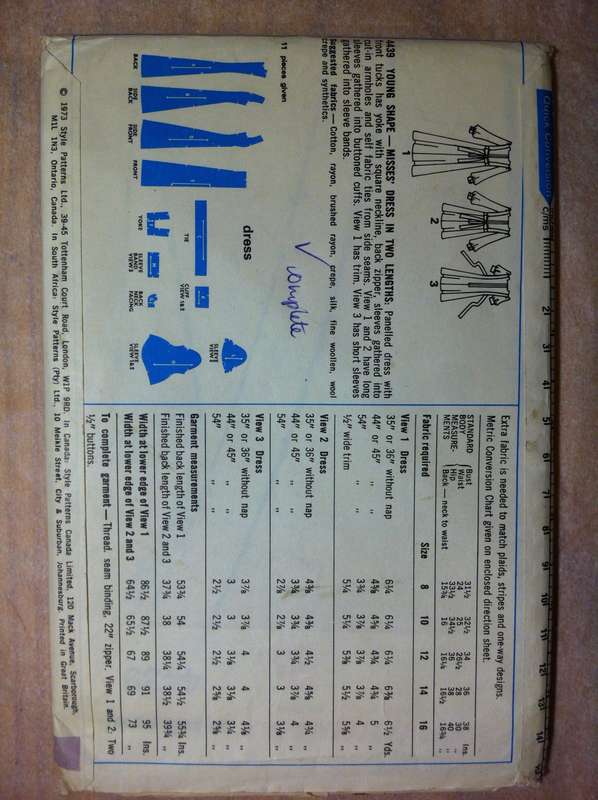 Quick Conversion
cms 1 2 3 4 5 6 7 8 9 10 11 12 13 14
1
2
3
4439 YOUNG SHAPE — MISSES' DRESS IN TWO LENGTHS: Panelled dress with
front tucks has yoke with square neckline, back zipper, sleeves gathered into
cut-in armholes and self fabric ties from side seams. View 1 and 2 have long
sleeves gathered into buttoned cuffs. View 1 has trim. View 3 has short sleeves
gathered into sleeve bands.
Suggested fabrics — Cotton, rayon, brushed rayon, crepe, silk, fine woollen, wool
crepe and synthetics.
11 pieces given
dress
✓ complete
BACK
SIDE BACK
SIDE FRONT
FRONT
TIE
CUFF VIEW 1&2
YOKE
SLEEVE BAND VIEW 3
BACK NECK FACING
SLEEVE VIEW 3
SLEEVE VIEW 1&2
Extra fabric is needed to match plaids, stripes and one-way designs.
Metric Conversion Chart given on enclosed direction sheet.
STANDARD Bust 31½ 32½ 34 36 38 Ins.
BODY Waist 24 25 26½ 28 30 ,,
MEASURE- Hip 33½ 34½ 36 38 40 ,,
MENTS Back — neck to waist 15¾ 16 16¼ 16½ 16¾ ,,
Fabric required Size 8 10 12 14 16
View 1 Dress
35" or 36" without nap 6¼ 6¼ 6¼ 6⅜ 6½ Yds.
44" or 45" ,, ,, 4⅝ 4⅝ 4¾ 5 ,,
54" ,, ,, 3¾ 3⅞ 3⅞ 4 ,,
½" wide trim 5¼ 5¼ 5⅜ 5½ 5⅝ ,,
View 2 Dress
35" or 36" without nap 4⅜ 4⅜ 4½ 4⅝ 4¾ ,,
44" or 45" ,, ,, 3¾ 3¾ 3¾ 3⅞ 4 ,,
54" ,, ,, 2⅞ 2⅞ 3 3 3⅛ ,,
View 3 Dress
35" or 36" without nap 3⅞ 3⅞ 4 4 4⅛ ,,
44" or 45" ,, ,, 3 3 3⅛ 3⅛ 3¼ ,,
54" ,, ,, 2½ 2½ 2½ 2⅝ 2⅝ ,,
Garment measurements
Finished back length of View 1 53¾ 54 54¼ 54½ 55¾ Ins.
Finished back length of View 2 and 3 37¾ 38 38¼ 38½ 39¾ ,,
Width at lower edge of View 1 86½ 87½ 89 91 95 Ins.
Width at lower edge of View 2 and 3 64½ 65½ 67 69 73 ,,
To complete garment — Thread, seam binding, 22" zipper. View 1 and 2: Two
½" buttons.
© 1973 Style Patterns Ltd., 39-45 Tottenham Court Road, London, W1P 9RD. In Canada: Style Patterns Canada Limited, 120 Mack Avenue, Scarborough,
M1L 1N3, Ontario, Canada. In South Africa: Style Patterns (Pty) Ltd., 10 Meikle Street, City & Suburban, Johannesburg. Printed in Great Britain.